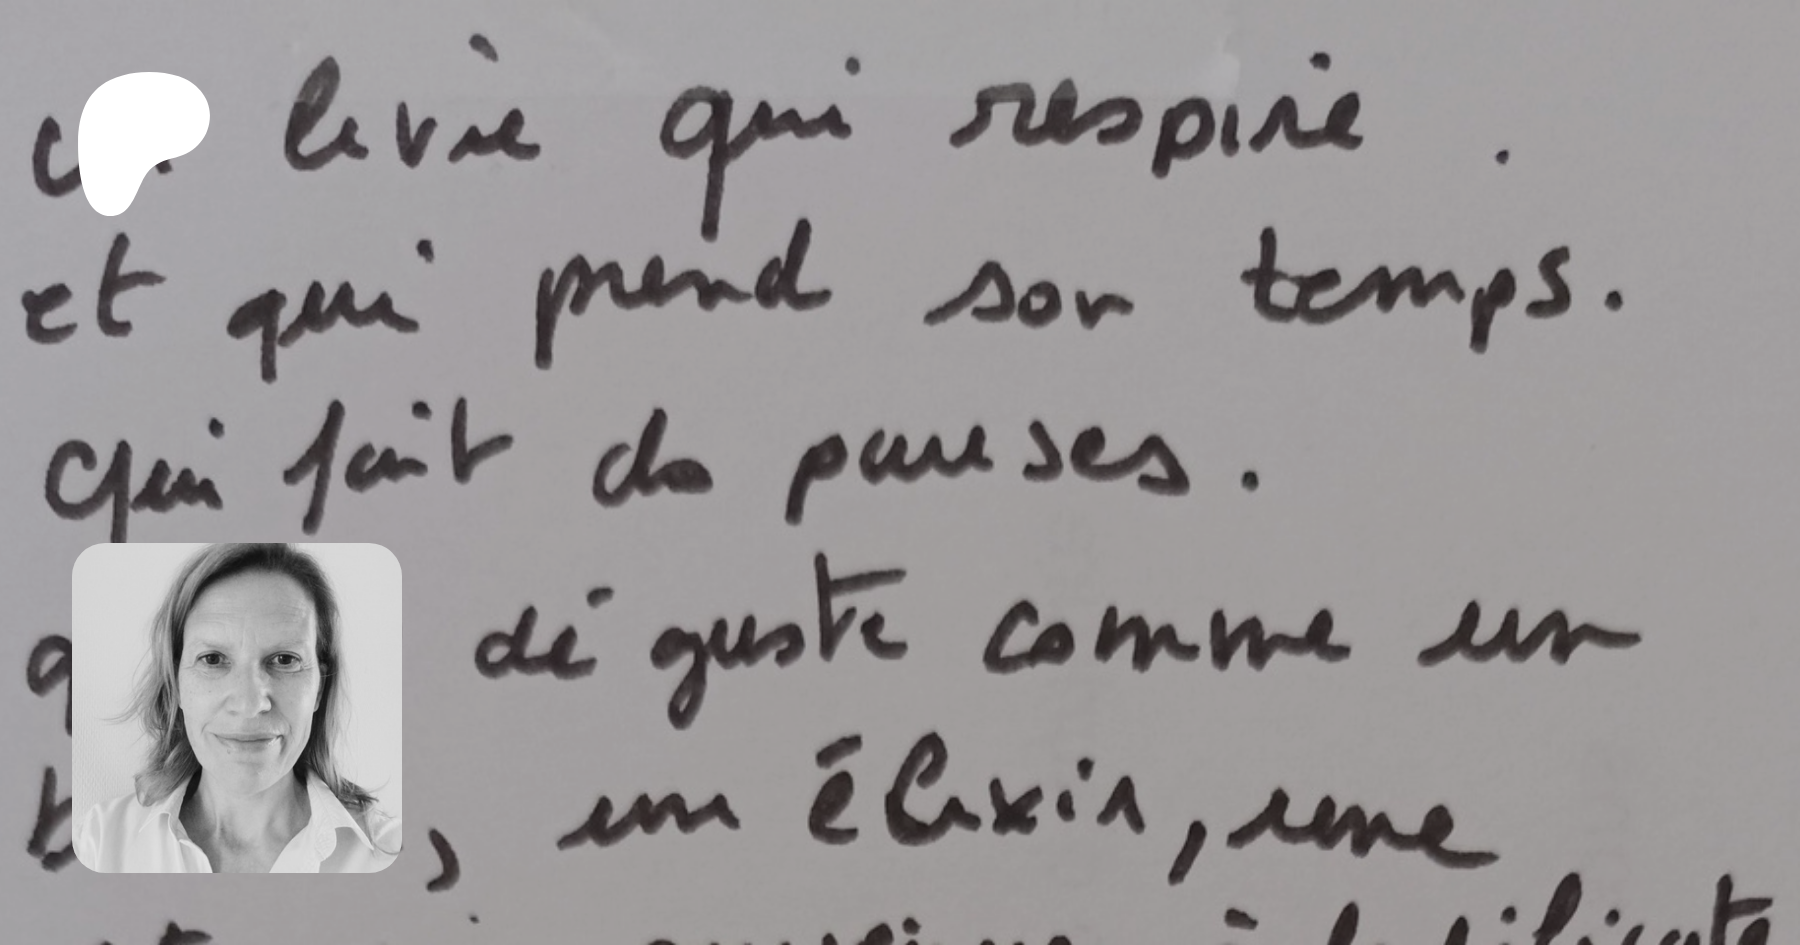 livre qui respire.
et qui prend son temps.
qui fait des pauses.
déguste comme un
, un élixir, une